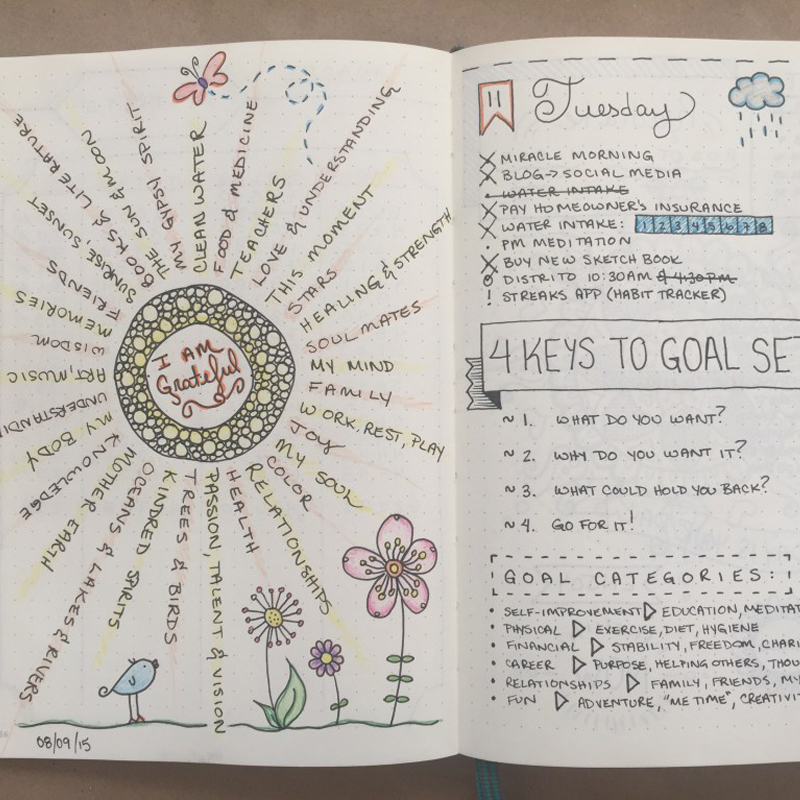 I AM
Grateful
CLEAN WATER
FOOD & MEDICINE
TEACHERS
LOVE & UNDERSTANDING
THIS MOMENT
STARS
HEALING & STRENGTH
SOUL MATES
MY MIND
FAMILY
WORK, REST, PLAY
JOY
MY SOUL
COLOR
RELATIONSHIPS
HEALTH
PASSION, TALENT & VISION
TREES & BIRDS
KINDRED SPIRITS
OCEANS & LAKES & RIVERS
MOTHER EARTH
KNOWLEDGE
MY BODY
UNDERSTANDI
ART, MUSIC
WISDOM
MEMORIES
FRIENDS
SUNRISE, SUNSET
BOOKS & LITERATURE
THE SUN & MOON
MY GYPSY SPIRIT
08/09/15
11 Tuesday
MIRACLE MORNING
BLOG → SOCIAL MEDIA
WATER INTAKE
PAY HOMEOWNER'S INSURANCE
WATER INTAKE: 1 2 3 4 5 6 7 8
PM MEDITATION
BUY NEW SKETCH BOOK
DISTRITO 10:30AM & 4:30PM
! STREAKS APP (HABIT TRACKER)
4 KEYS TO GOAL SET
~ 1. WHAT DO YOU WANT?
~ 2. WHY DO YOU WANT IT?
~ 3. WHAT COULD HOLD YOU BACK?
~ 4. GO FOR IT!
GOAL CATEGORIES:
• SELF-IMPROVEMENT ▷ EDUCATION, MEDITAT
• PHYSICAL ▷ EXERCISE, DIET, HYGIENE
• FINANCIAL ▷ STABILITY, FREEDOM, CHARI
• CAREER ▷ PURPOSE, HELPING OTHERS, THOU
• RELATIONSHIPS ▷ FAMILY, FRIENDS, MY
• FUN ▷ ADVENTURE, "ME TIME", CREATIVIT